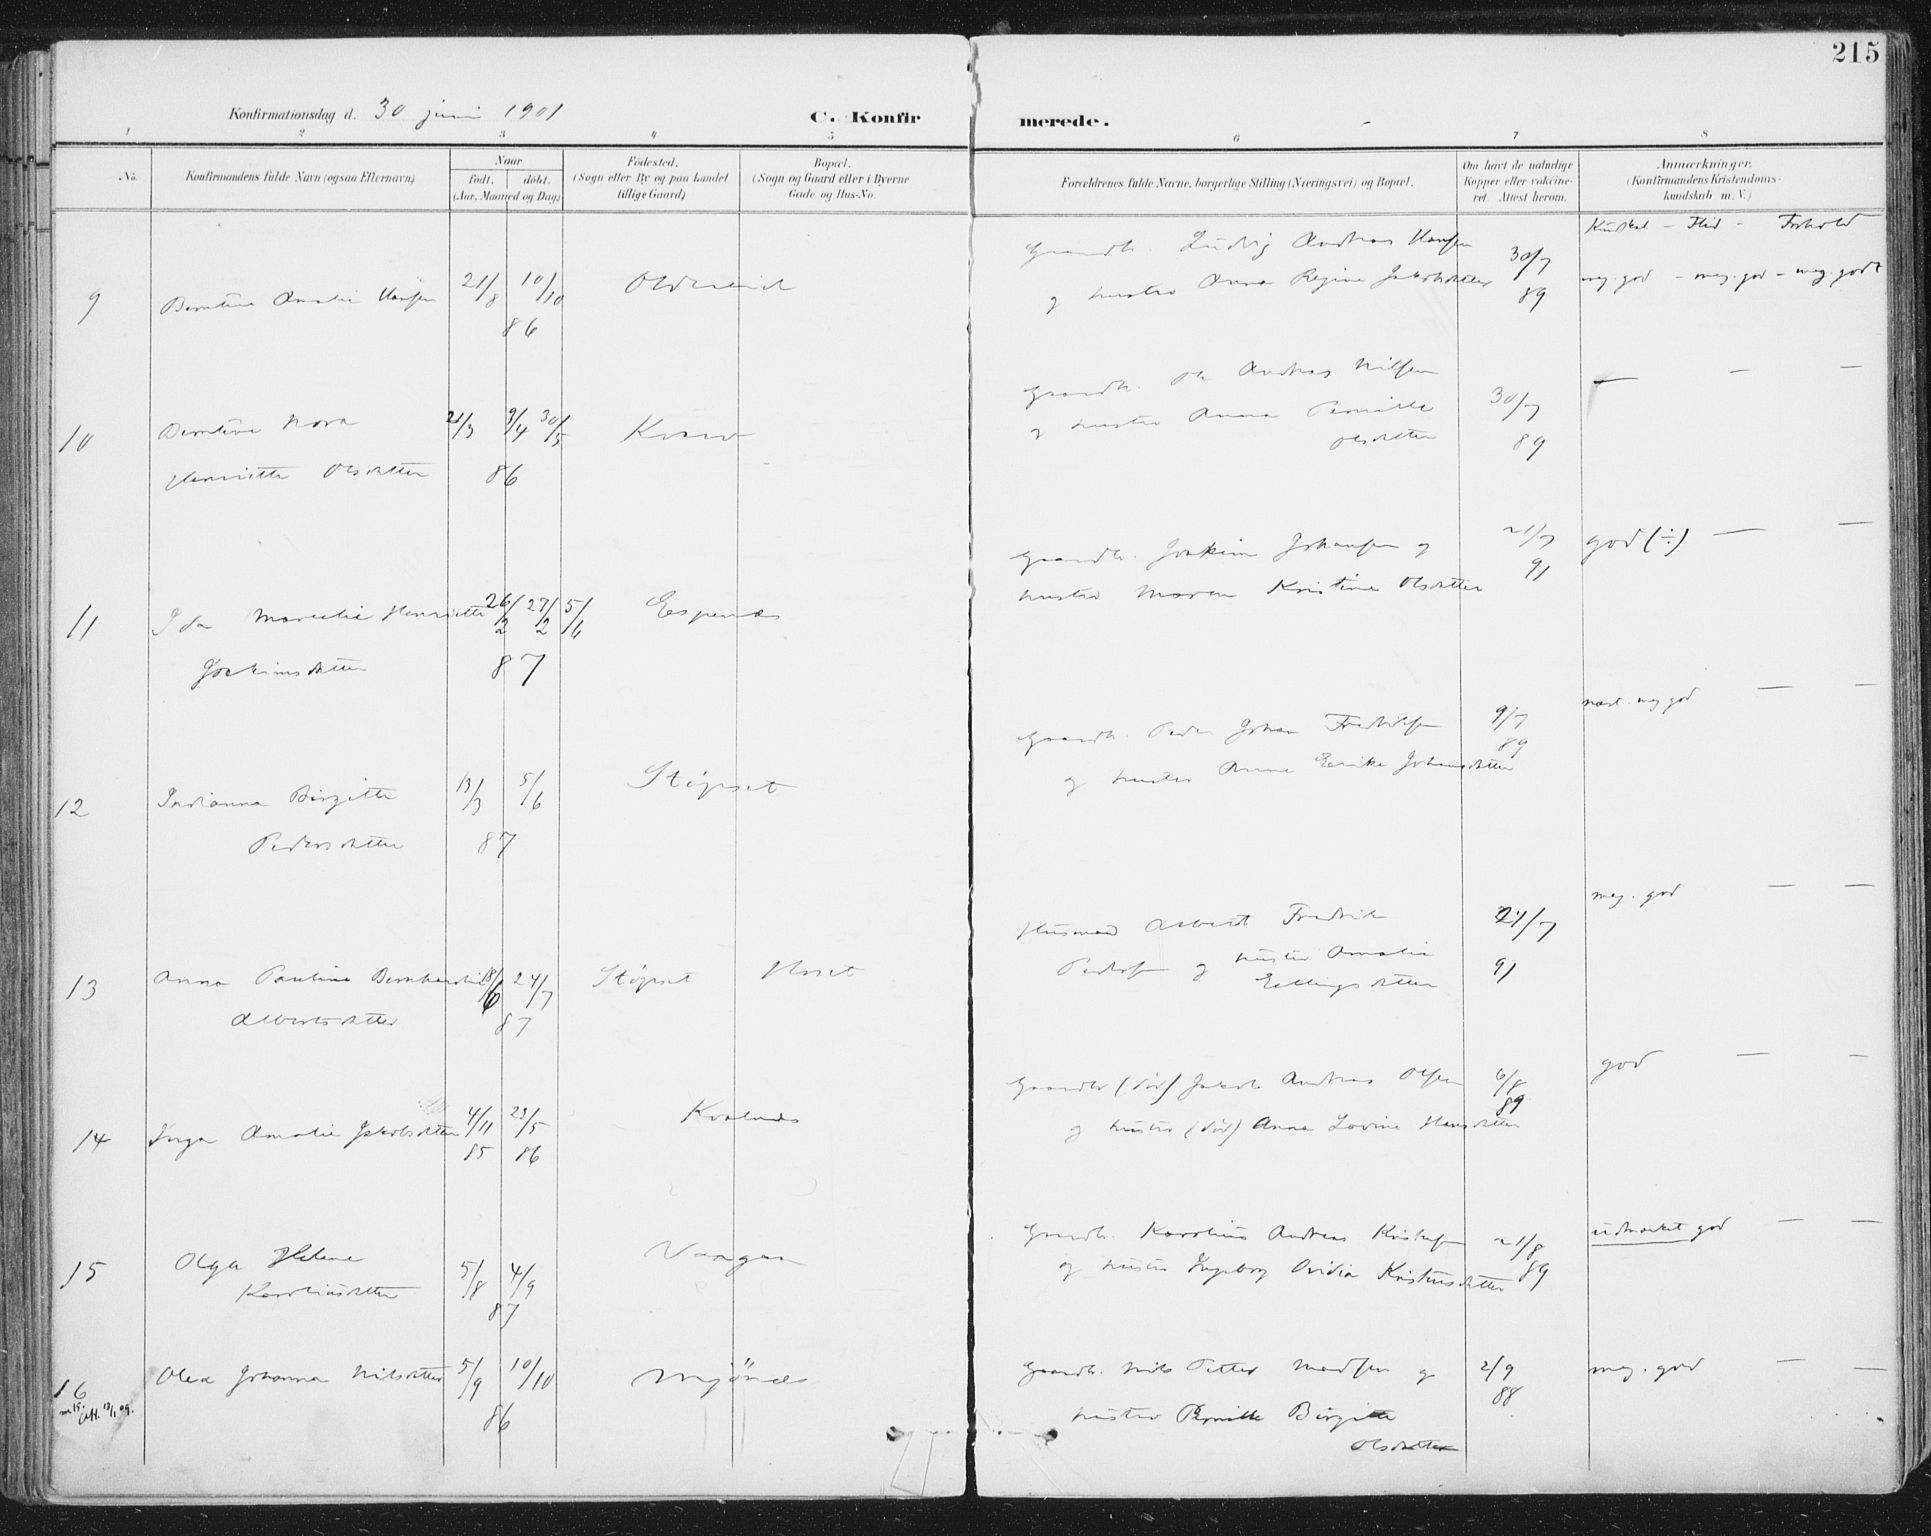 215
Konfirmationsdag d. 30 juni 1901
C. Konfirmerede.
1 2 3 4 5 6 7 8
No.
Konfirmandens fulde Navn (ogsaa Efternavn)
Naar
födt. döbt.
(Aar, Maaned og Dag)
Födested.
(Sogn eller By og paa Landet
tillige Gaard)
Bopæl.
(Sogn og Gaard eller i Byerne
Gade og Hus-No.
Forældrenes fulde Navne, borgerlige Stilling (Næringsvei) og Bopæl.
Om havt de naturlige
Kopper eller vakcine-
ret. Attest herom.
Anmærkninger.
(Konfirmandens Kristendoms-
kundskab m. V.)
Flid - Forhold
9 Berntine Amalie Hansen 21/8 10/10
86
Gaardb. Ludvig Andreas Hansen 30/7
og hustru Anna Regine Jakobsdatter 89
meg. god - meg. god - meg. godt
10 Berntine Nora 21/3 9/4 30/5
Henriette Olsdatter 86
Gaardb. Ole Andreas Nilsen 30/7
og hustru Anna Pernille
Olsdatter 89
— — —
11 Ida Henriette 26/2 27/2 5/6 Espenes
Joakimsdatter 87
Gaardb. Joakim Johansen og 21/7
hustru Maren Kristine Olsdatter 91
god (÷) — —
12 Indianna Birgitte 13/3 5/6 Stöpset
Pedersdatter 87
Gaardb. Peder Johan Fredriksen 9/7
89
og hustru Anne Erika Johansdatter
næst. meg god — —
13 Anna Pauline 18/6 24/7 Stöpset
Albertsdatter 87
Husmand Albert Fredrik 21/7
Pedersen og hustru Amalie 91
Ellingsdatter
meg. god — —
14 Inga Amalie Jakobsdatter 4/11 23/5 Kvalnes
85 86
Gaardb (död) Jakob Andreas Olsen 6/8
89
og hustru (död) Anna Lovine Hansdatter
god — —
15 Olga Helene 5/8 4/9 Vaagan
Karoliusdatter 87
Gaardb. Karolius Andreas Kristensen 21/8
og hustru Ingeborg Ovidia Kristiansdatter 89
udmærket god — —
16 Olea Johanna Nilsdatter 5/9 10/10 Mjönes
86
Gaardb. Nils Petter Madsen og 2/9
88
hustru Pernille Birgitte
Olsdatter
meg. god — —